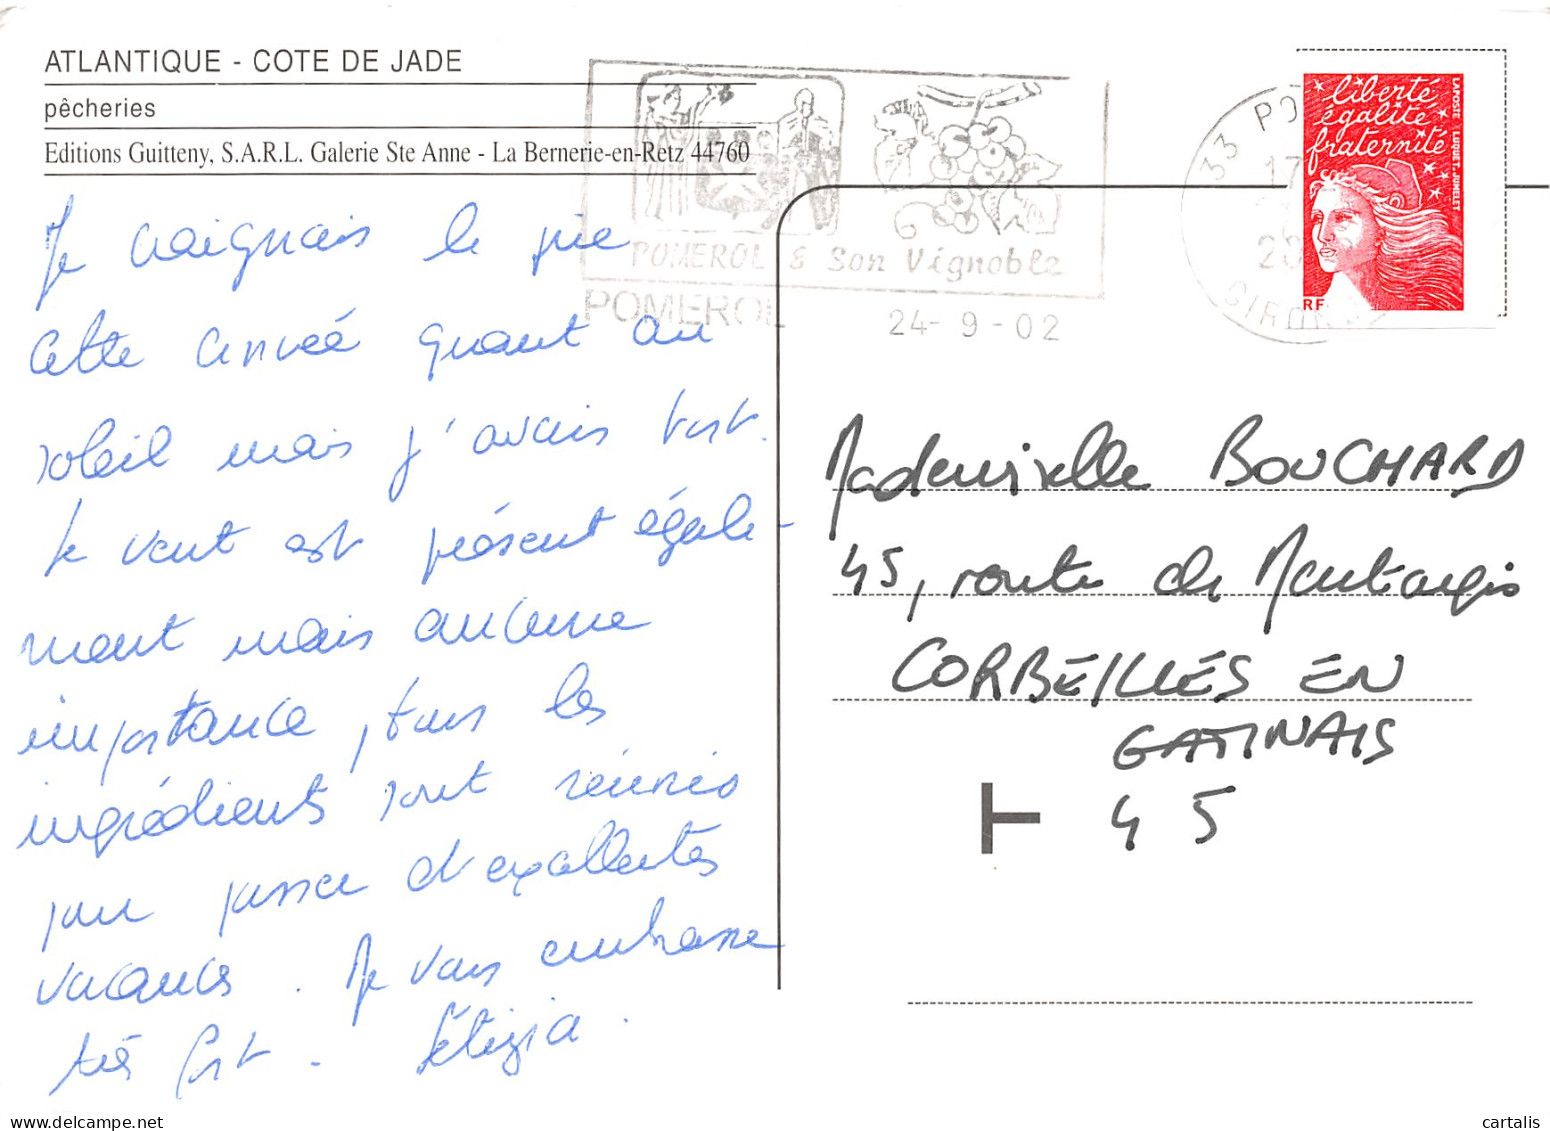 ATLANTIQUE - COTE DE JADE
pêcheries
Editions Guitteny, S.A.R.L. Galerie Ste Anne - La Bernerie-en-Retz 44760
POMEROL & Son Vignoble
POMEROL
24- 9 - 02
33 PO
17
20
GIRON
liberté
égalité
fraternité
RF
LAPOSTE LUQUET.JUMELET
Je craignais le pire
cette année quant au
soleil mais j'avais tort.
Le vent est présent égale-
ment mais aucune
importance, tous les
ingrédients sont réunis
pour passer d'excellentes
vacances. Je vous embrasse
très fort. Létizia.
Mademoiselle BOUCHARD
45, route de Montargis
CORBEILLES EN
GATINAIS
45
T
cartalis